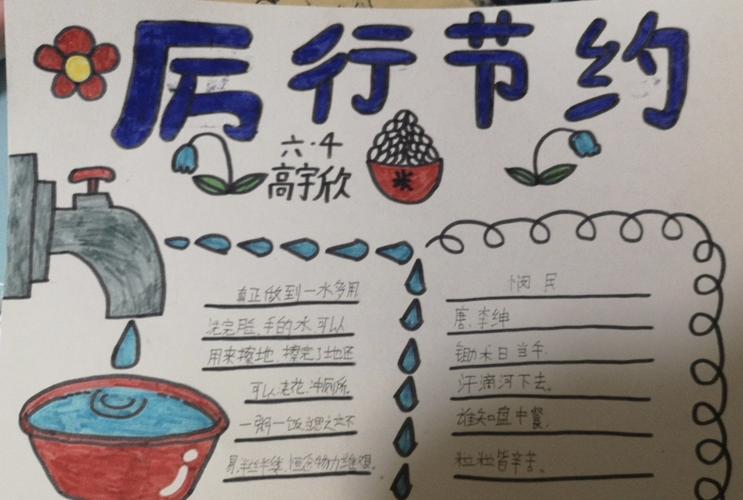 厉行节约
六·4
高宇欣
米
真正做到一水多用
洗完脸、手的水可以
用来擦地,擦完了地还
可以浇花、冲厕所。
一粥一饭
易,半丝半缕,恒念物力维艰。
悯民
唐.李绅
锄禾日当午.
汗滴河下去.
知盘中餐.
粒粒皆辛苦。